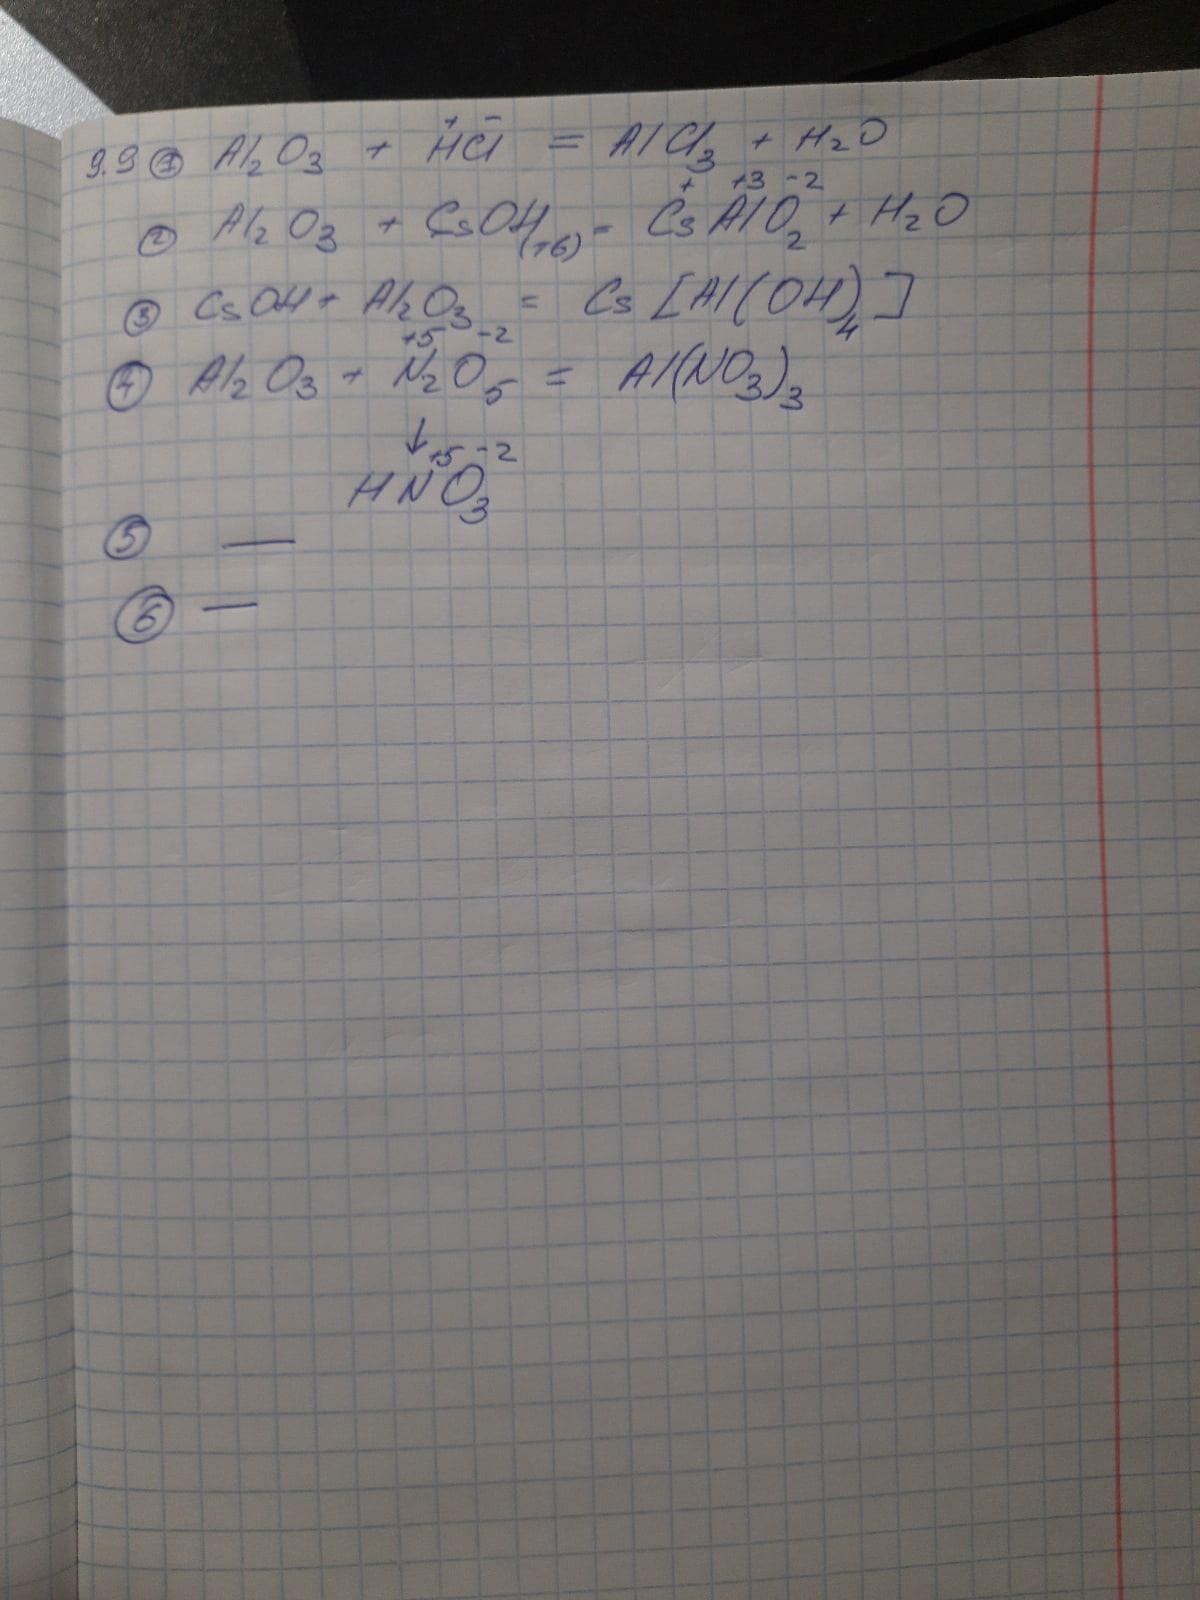 9.9 ① Al₂O₃ + H⁺Cl⁻ = AlCl₃ + H₂O
② Al₂O₃ + CsOH(тб) = Cs⁺Al⁺³O₂⁻² + H₂O
③ CsOH + Al₂O₃ = Cs[Al(OH)₄]
④ Al₂O₃ + N₂⁺⁵O₅⁻² = Al(NO₃)₃
↓
HN⁺⁵O₃⁻²
⑤ —
⑥ —